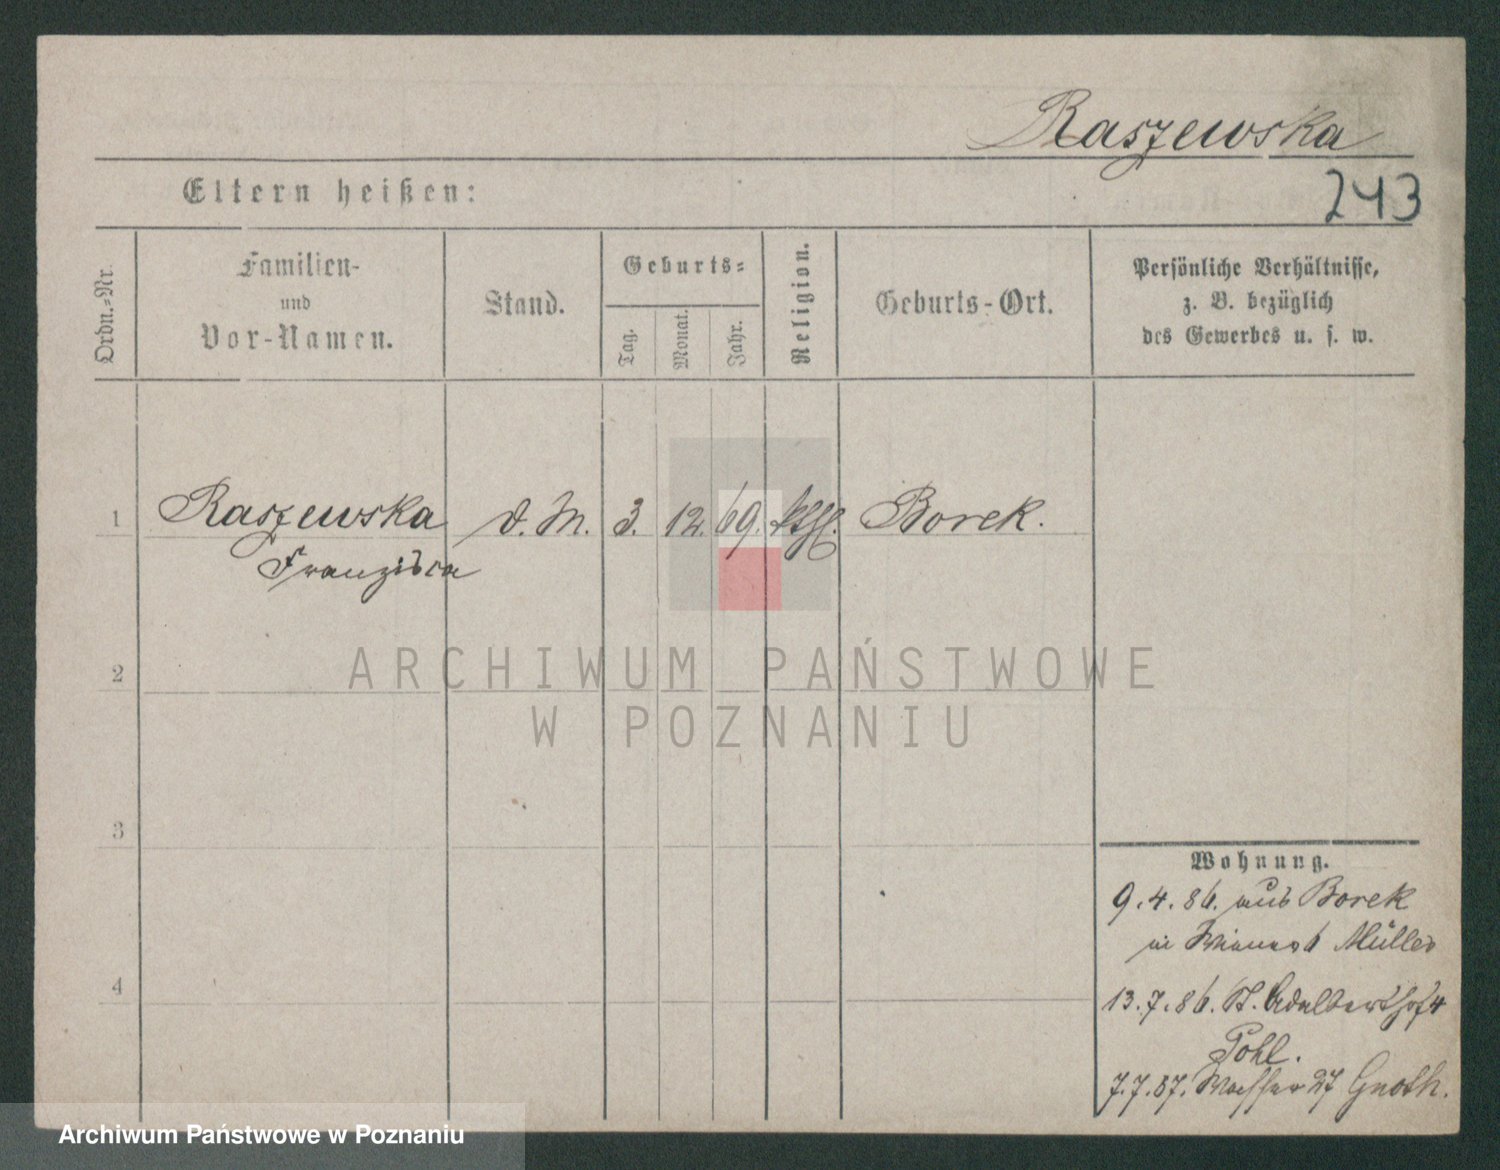 Raszewska
Eltern heißen:
243
Ordn.-Nr.
Familien-
und
Vor-Namen.
Stand.
Geburts-
Tag.
Monat.
Jahr.
Religion.
Geburts-Ort.
Persönliche Verhältnisse,
z. B. bezüglich
des Gewerbes u. s. w.
1 Raszewska d. M. 3. 12. 69. kthl. Borek.
Franziska
2
ARCHIWUM PAŃSTWOWE
W POZNANIU
3
4
Wohnung.
9.4.86. aus Borek
in 6 Müller
13.7.86. St. Adalberthof 4
Pohl.
7.7.87. Wasser 27 Gnoth.
Archiwum Państwowe w Poznaniu